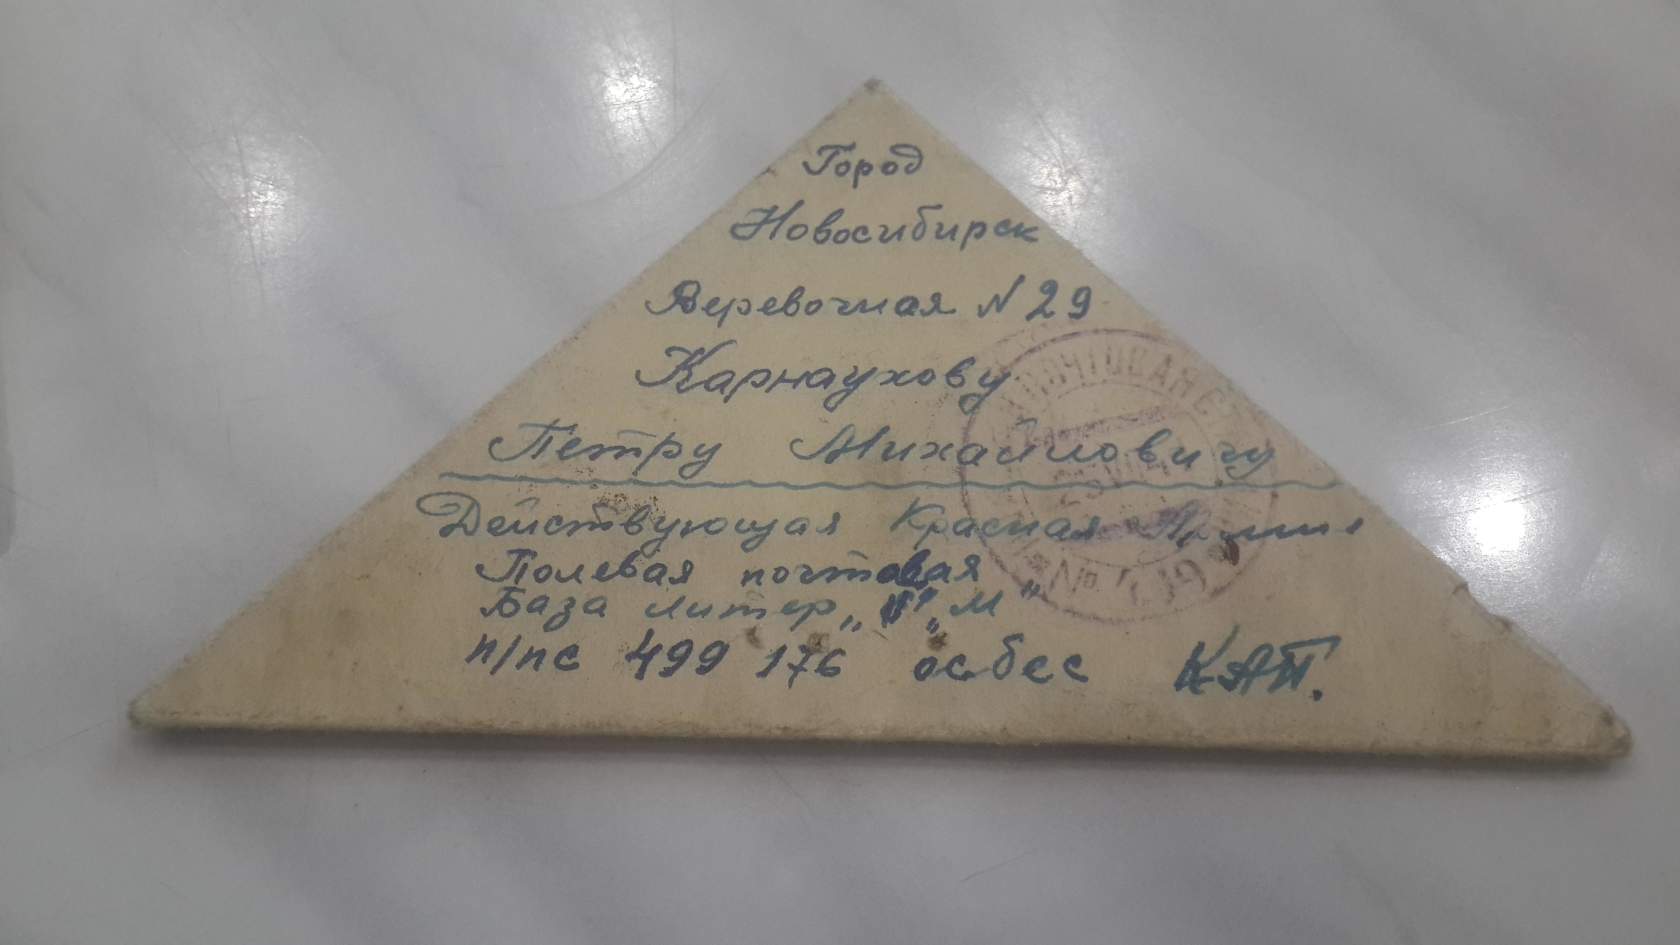 Город
Новосибирск
Веревочная № 29
Карнаухову
Петру Михайловичу
Действующая Красная Армия
Полевая почтовая
База литер „ М "
п/пс 499 176 осбес КАТ.
ПОЧТОВАЯ СТ
№